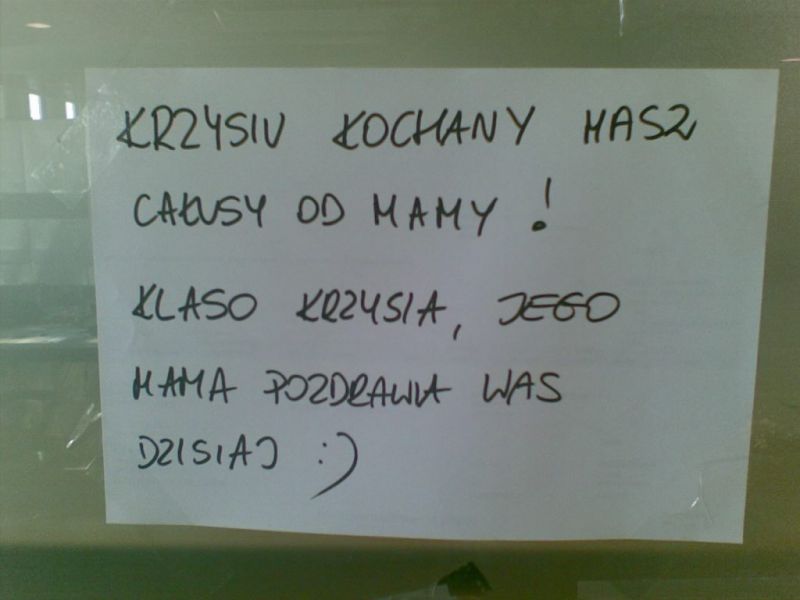 KRZYSIU KOCHANY MASZ
CAŁUSY OD MAMY !
KLASO KRZYSIA, JEGO
MAMA POZDRAWIA WAS
DZISIAJ :)